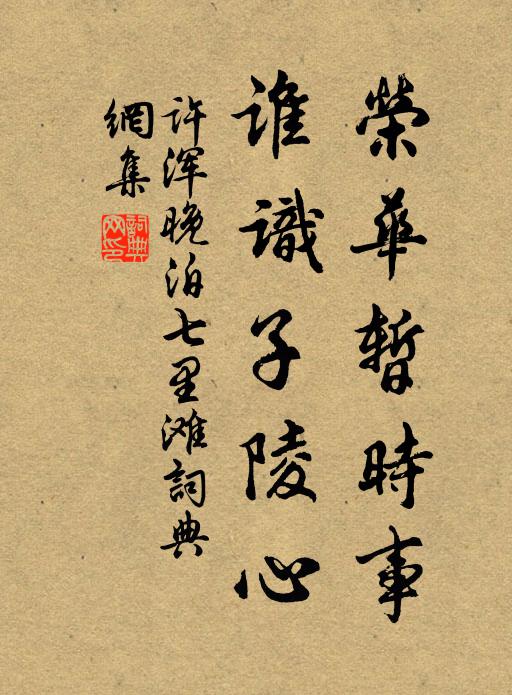 榮華暫時事
誰識子陵心
许浑晚泊七里滩詞典
網集
詞典
网印